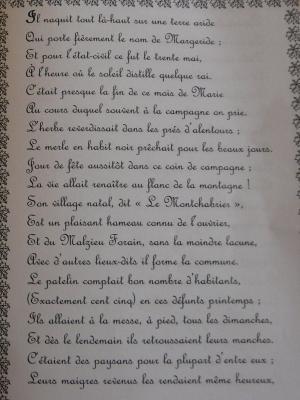 Il naquit tout là-haut sur une terre aride
Qui porte fièrement le nom de Margeride ;
Et pour l'état-civil ce fut le trente mai,
A l'heure où le soleil distille quelque rai.
C'était presque la fin de ce mois de Marie
Au cours duquel souvent à la campagne on prie.
L'herbe reverdissait dans les prés d'alentours ;
Le merle en habit noir prêchait pour les beaux jours.
Jour de fête aussitôt dans ce coin de campagne ;
La vie allait renaître au flanc de la montagne !
Son village natal, dit « Le Montchabrier »,
Est un plaisant hameau connu de l'ouvrier,
Et du Malzieu Forain, sans la moindre lacune,
Avec d'autres lieux-dits il forme la commune.
Le patelin comptait bon nombre d'habitants,
(Exactement cent cinq) en ces défunts printemps ;
Ils allaient à la messe, à pied, tous les dimanches,
Et dès le lendemain ils retroussaient leurs manches.
C'étaient des paysans pour la plupart d'entre eux ;
Leurs maigres revenus les rendaient même heureux,